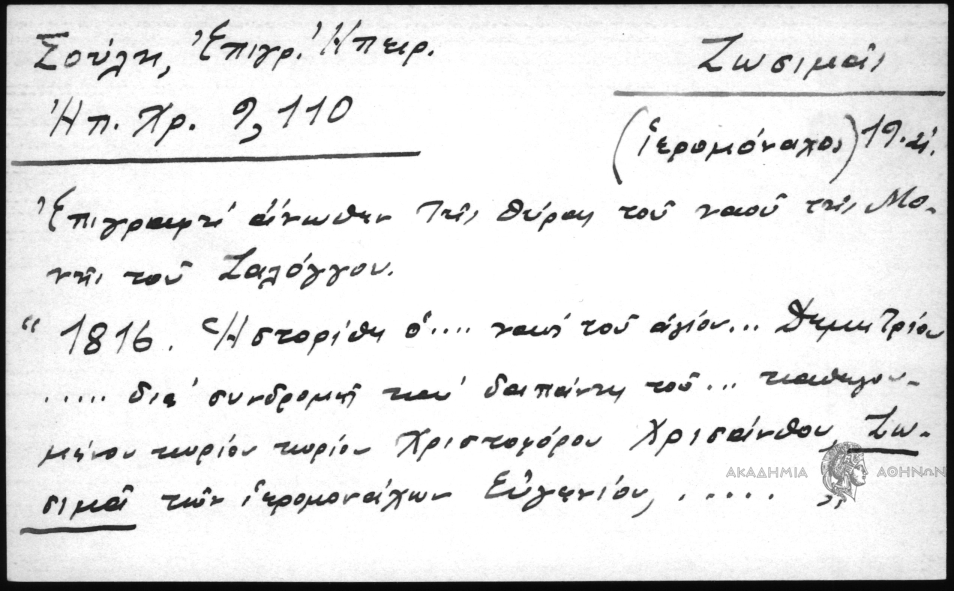 Σούλη, Ἐπιγρ. Ἠπειρ.
Ζωσιμᾶς
Ἠπ. Χρ. 9, 110
(ἱερομόναχος) 19. αἰ.
Ἐπιγραφὴ ἄνωθεν τῆς θύρας τοῦ ναοῦ τῆς Μο-
νῆς τοῦ Ζαλόγγου.
“1816. Ἡστορίθη ὁ.... ναὸς τοῦ ἁγίου... Δημητρίου
..... διὰ συνδρομῆς καὶ δαπάνης τοῦ... καθηγου-
μένου κυρίου κυρίου Χριστοφόρου Χρισάνθου, Ζω-
σιμᾶ τῶν ἱερομονάχων Εὐγενίου, ...... ”
ΑΚΑΔΗΜΙΑ ΑΘΗΝΩΝ